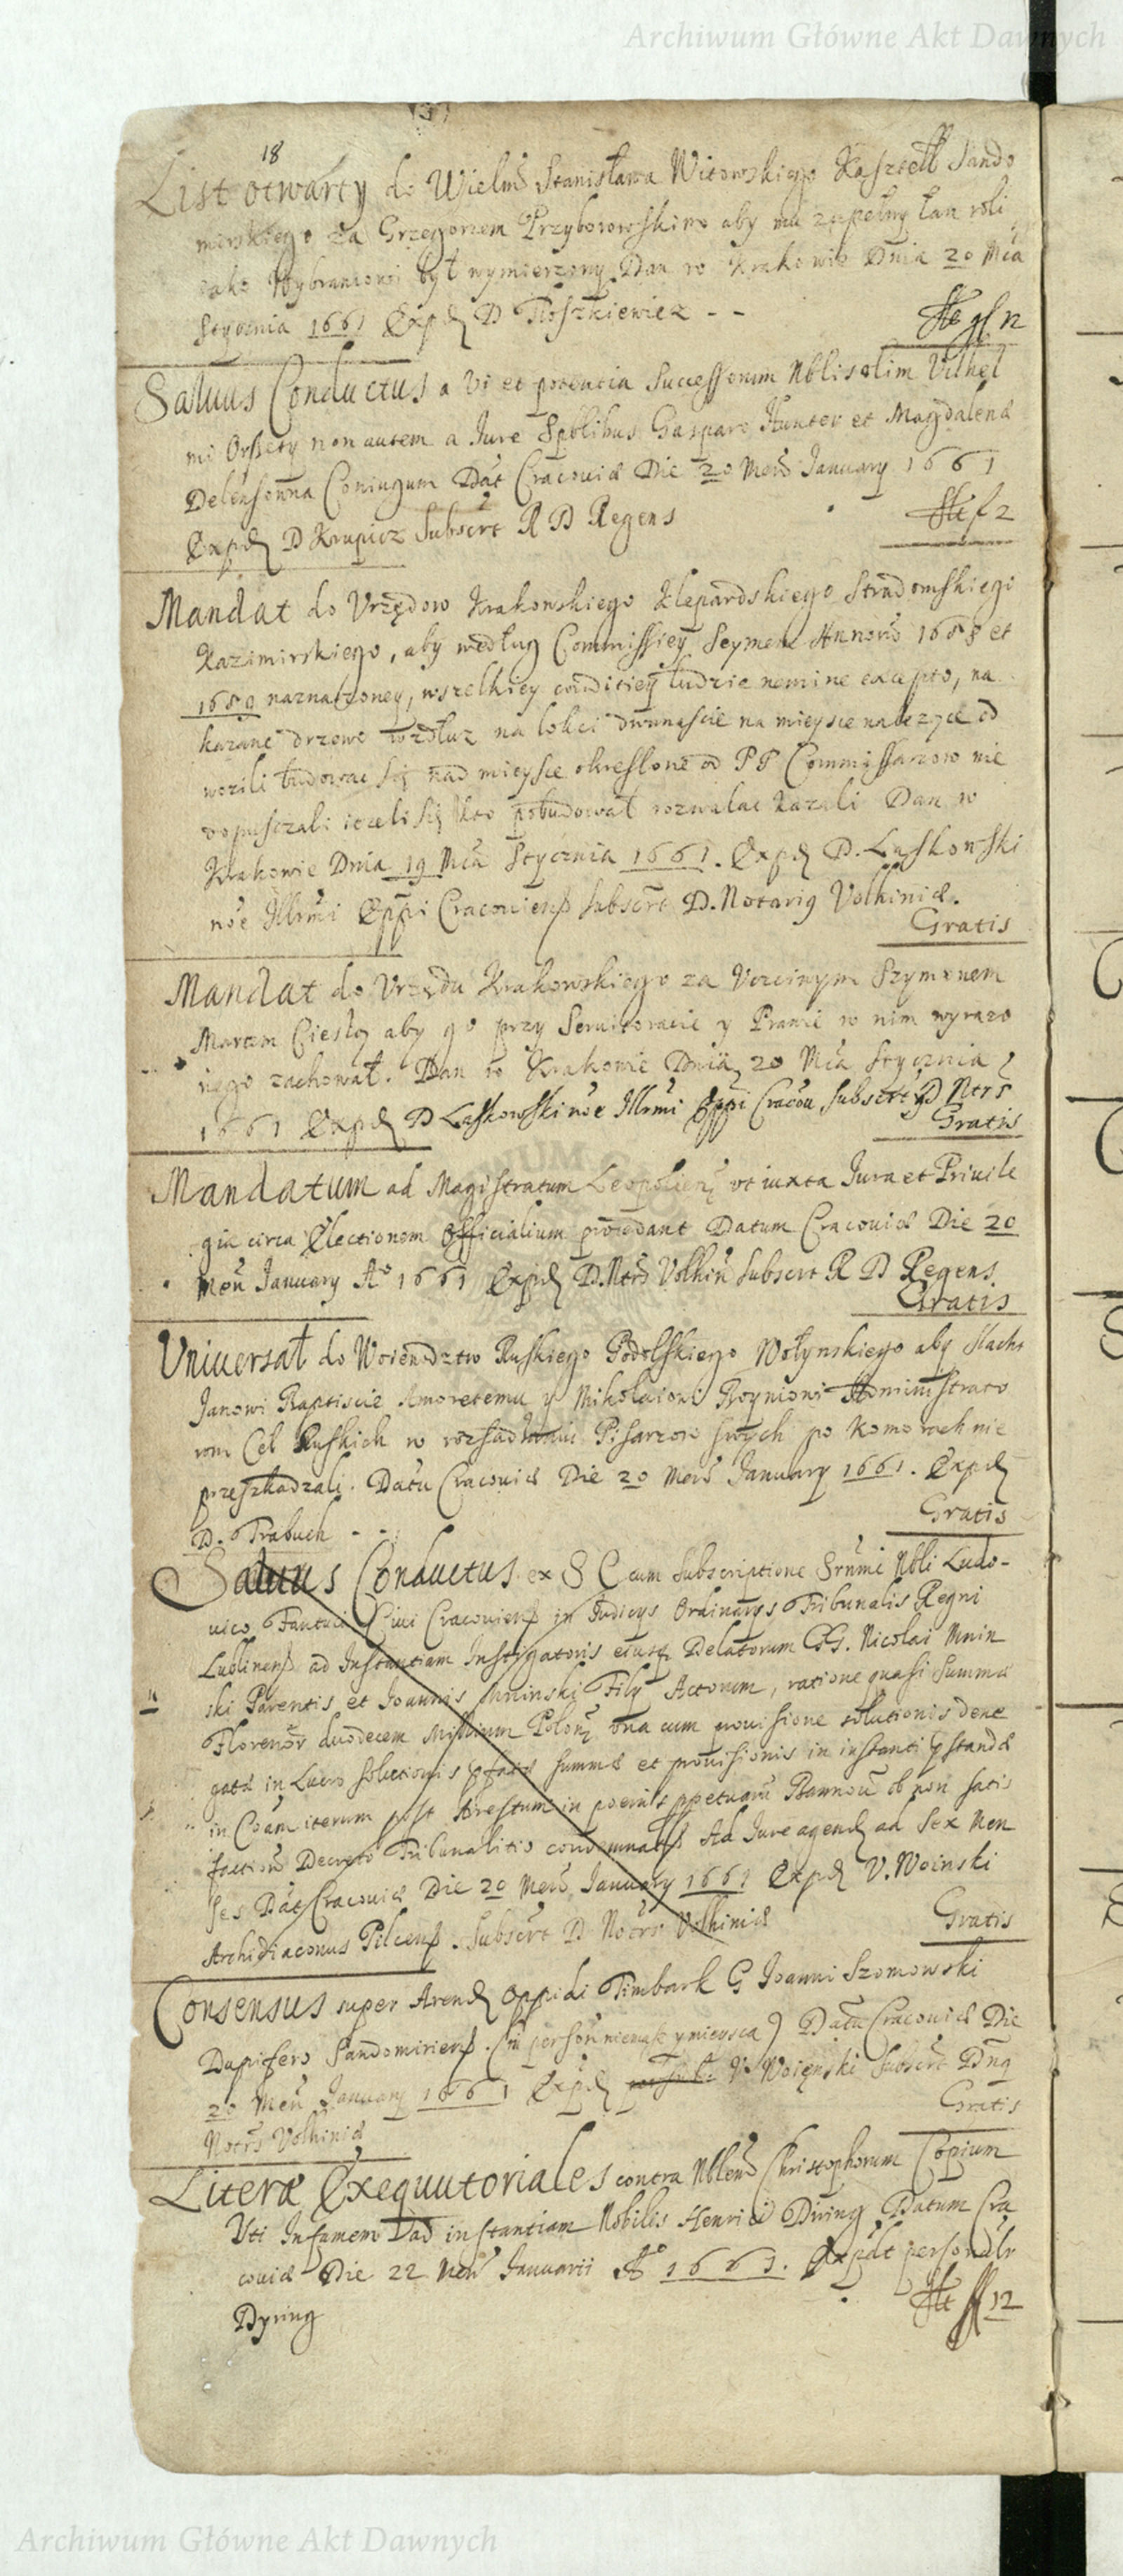 Archiwum Główne Akt Dawnych
18
List otwarty do Wielmo Stanisława Witowskiego Kasztell Sando
mirskiego za Grzegorzem Przyborowskim aby mu zupełny łan roli
iako WybranCowi był wymierzony Dan w Krakowie Dnia 20 Mca
Stycznia 1661 Expd D Tloszkiewicz - -
Salvus Conductus a Vi et potentia Successorum Nblis olim Vilhel
mi Orsety non autem a Jure Spblibus Gaspare Hunter et Magdalena
Coniugum Dat Cracoviæ Die 20 Mens January 1661
Expd D Krupicz Subscrt R D Regens
Mandat do Vrzędow Krakowskiego Klepardskiego Stradomskiego
Kazimirskiego, aby według Commissiey Seymem Annoro 1658 et
1659 naznaczoney, wszelkiey conditiey ludzie nemine excepto, na
kazane drzewo wzdłuz na łokci dwanascie na mieysce nalezyte od
wozili budowac się nad mieysce okreslone od PP Commissarzow nie
dopusczali iezeli się kto pobudował rozwalac kazali Dan w
Krakowie Dnia 19 Mca Stycznia 1661. Expd D. Laskowski
nōe Illrmi Eppi Cracoviens subscrt D. Notarius Volhiniæ.
Gratis
Mandat do Vrzędu Krakowskiego za Vczciwym Szymonem
Marcem Ciesłą aby go przy Servitoracie y Prawie w nim wyrazo
nego zachował. Dan w Krakowie Dnia 20 Mca Stycznia
1661 Expd D Laskowski nōe Illrmi Eppi Cracou subscrt D Ntrs
Gratis
Mandatum ad Magistratum Leopoliens vt iuxta Jura et Privile
gia circa Electionem Officialium procedant Datum Cracoviæ Die 20
Men January Ao 1661 Expd D. Ntrs Volhin subscrt R D Regens
Gratis
Vniuersał do Woiewodztw Ruskiego Podolskiego Wołynskiego aby Slachе
Janowi Baptiscie Amoretemu y Mikołaiowi Administrato
rom Ceł Ruskich w rozsadzaniu Pisarzow swych po Komorach nie
przeszkadzali. Datū Cracoviæ Die 20 Mens January 1661. Expd
Gratis
D. Trabuch - -
Salvus Conductus ex S C cum Subscriptione Srnmi Nbli Ludo-
uico Fantuci Ciui Cracouiens in Judicys Ordinarys Tribunalis Regni
Lublinens ad Instantiam Instigatoris eiusq Delatorum GG. Nicolai Mnin
ski Parentis et Joannis Mninski Fily Actorum, ratione quasi Summæ
Florenor duodecem Millium Polon vna cum prouisione solutionis dene
gatæ in Lucro solutionis pfatæ summæ et prouisionis in instanti pstandæ
in Coam iterum post Arestum in poenis ppetuarū Bannou ob non satis
Decreto Tribunalitio condemnati Ad Jure agend ad Sex Men
ses Dat Cracouiæ Die 20 Mens January 1661 Expd V. Woinski
Archidiaconus Pilcens. Subscrt D Notrs Volhiniæ
Gratis
Consensus super Arend Oppidi Timbark G Joanni Szomowski
Dapifero Sandomiriens. Datū Cracoviæ Die
20 Men January 1661 Expd V. Woienski subscrt
Notrs Volhiniæ
Gratis
Literæ Exequutoriales contra Nblem Christophorum
Vti Infamem ad instantiam Nobilis Henrici Diring Datum Cra
couiæ Die 22 Mens Januarii Ao 1661. Expdt personalr
Dyring
Archiwum Główne Akt Dawnych